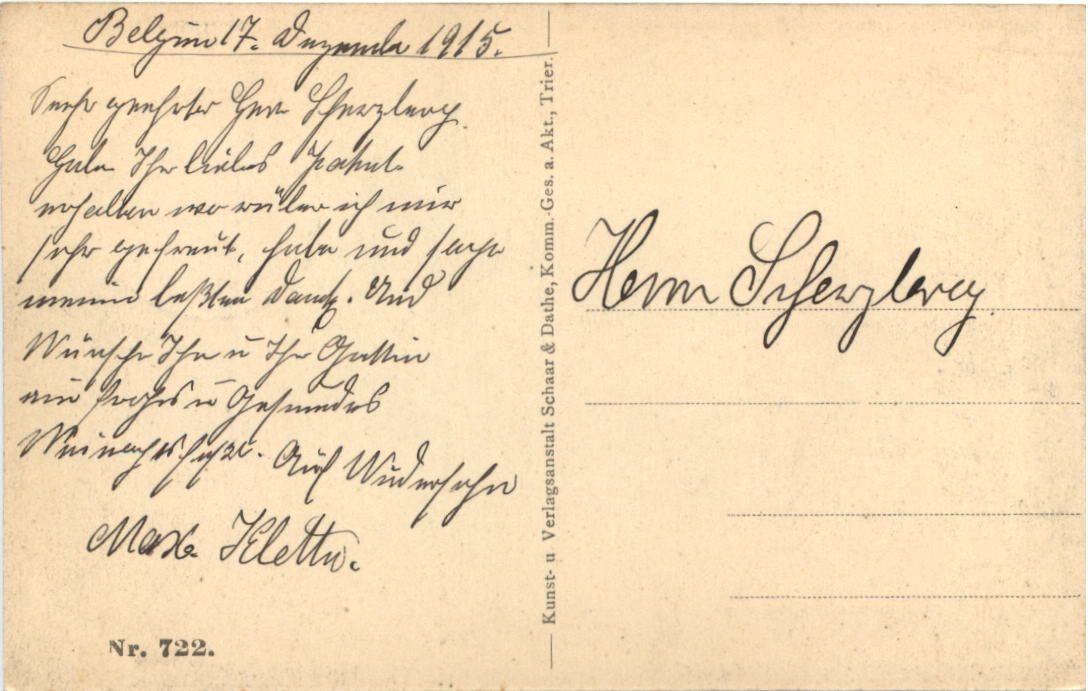 Belgien 17. Dezember 1915.
Sehr geehrter Herr Scherzberg.
Habe Ihr liebes Paket
erhalten worrüber ich mir
sehr gefreut, habe und sage
meinen besten Dank. Und
Wünsche Ihn u Ihr Gattin
ein frohes u Gesundes
Weinachsfest. Auf Widersehn
Max
Nr. 722.
Kunst- u Verlagsanstalt Schaar & Dathe, Komm.-Ges. a. Akt., Trier.
Herrn Scherzberg.